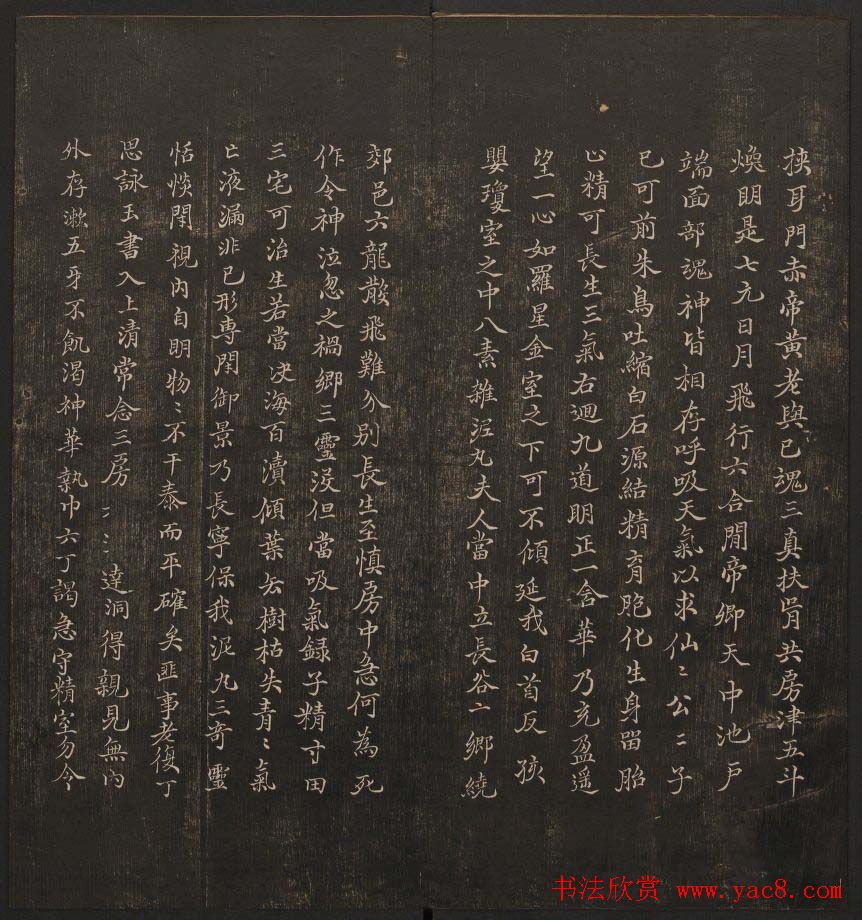 挾耳門赤帝黃老與己魂三真扶胥共房津五斗
煥明是七元日月飛行六合間帝卿天中池戶
端面部魂神皆相存呼吸天氣以求仙〻公〻子
已可前朱鳥吐縮白石源結精育胞化生身留胎
心精可長生三氣右迴九道明正一含華乃充盈遥
望一心如羅星金室之下可不傾延我白首反孩
嬰瓊室之中八素雜泥丸夫人當中立長谷〻鄉繞
郊邑六龍散飛難分别長生至慎房中急何為死
作令神泣忽之禍鄉三靈没但當吸氣録子精寸田
三宅可治生若當决海百瀆傾葉去樹枯失青〻氣
亡液漏非已形專閑御景乃長寧保我泥丸三奇靈
恬惔閑視内自明物〻不干泰而平確矣匪事老復丁
思詠玉書入上清常念三房〻〻達洞得親見無内
外存漱五牙不飢渴神華執巾六丁謁急守精室勿令
书法欣赏 www.yac8.com